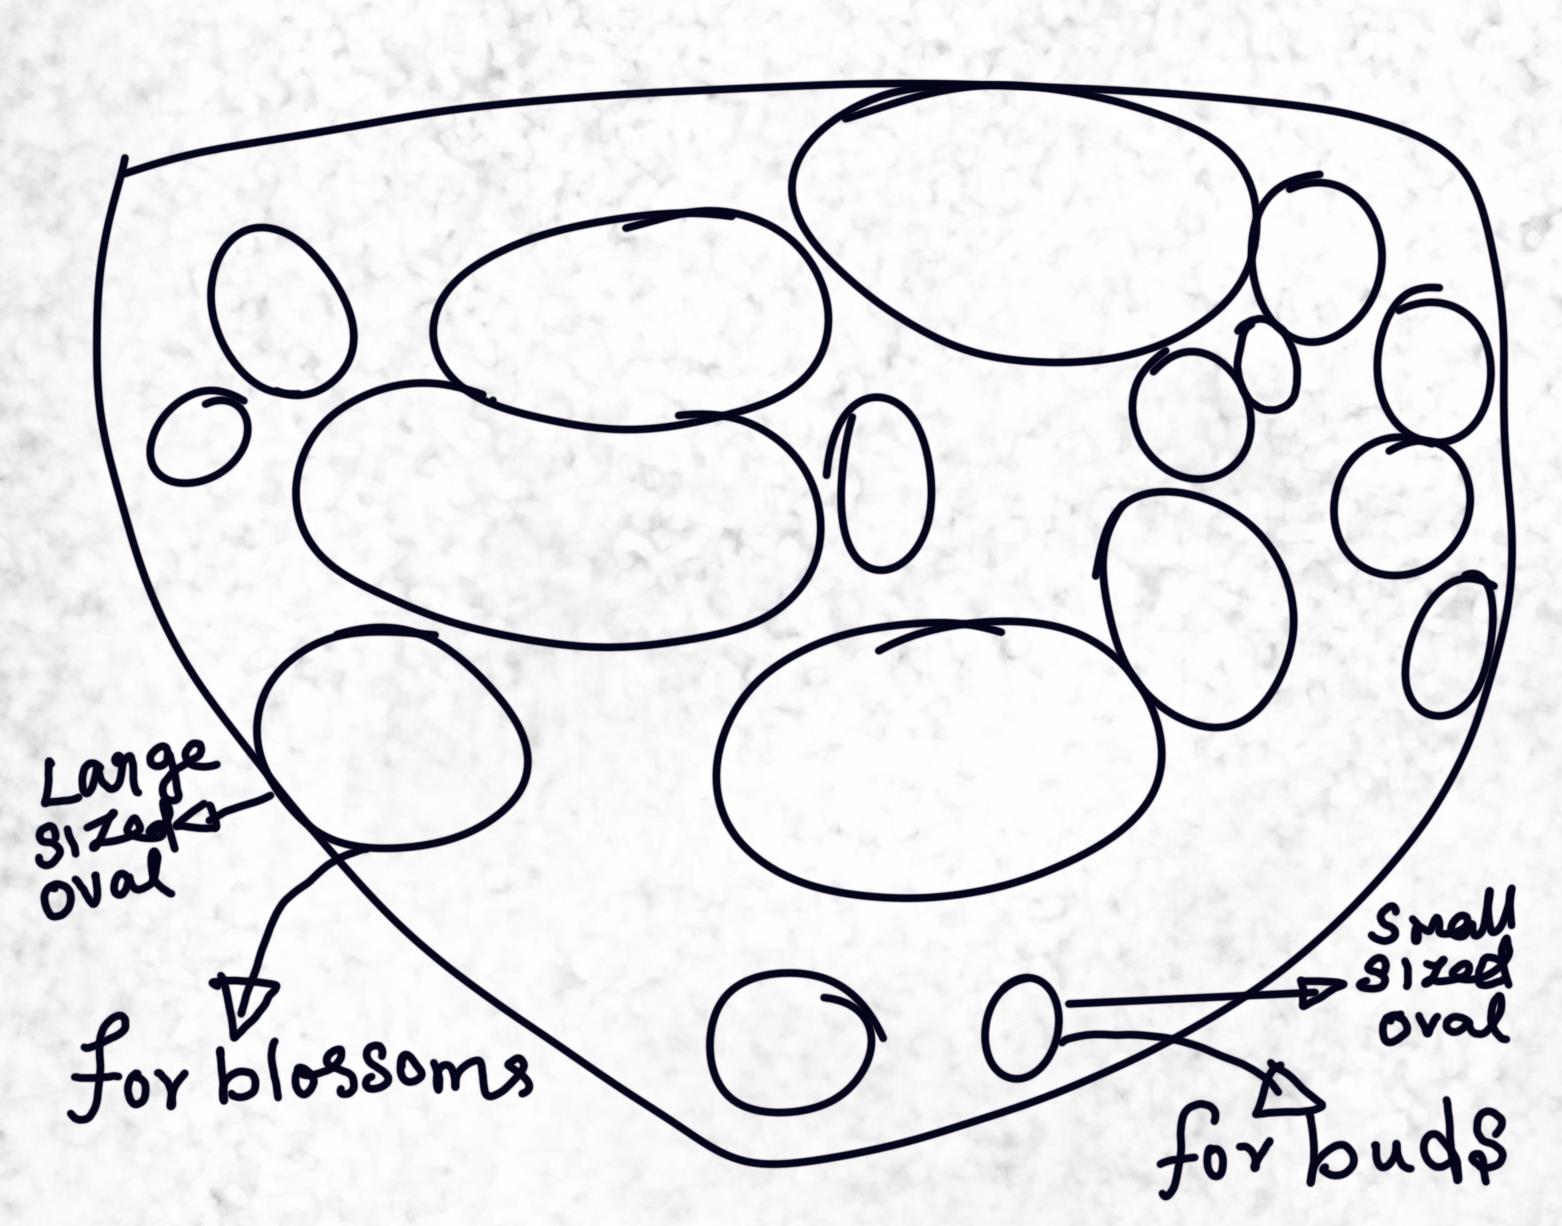 Large
sized
oval
for blossoms
small
sized
oval
for buds